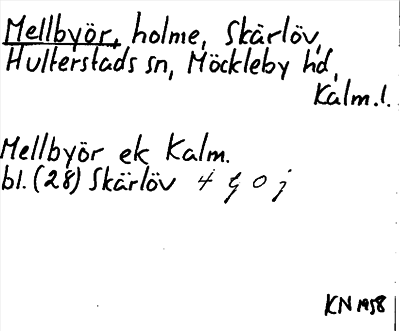 Mellbyör, holme, Skärlöv,
Hulterstads sn, Möckleby hd,
Kalm.l.
Mellbyör ek Kalm.
bl. (28) Skärlöv 4 g o j
KN 1958